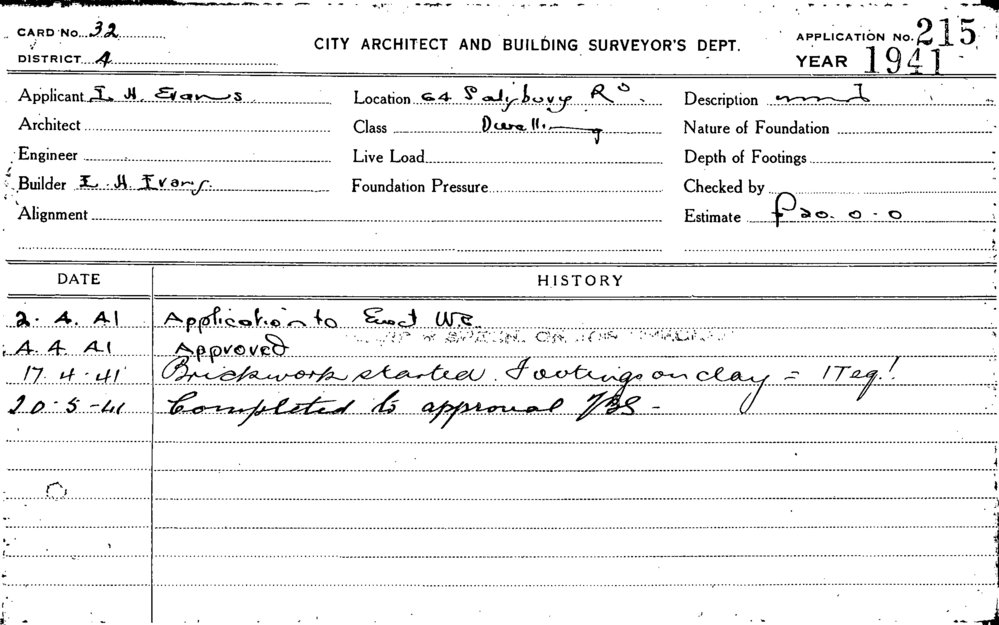 CARD No. 32
CITY ARCHITECT AND BUILDING SURVEYOR'S DEPT.
APPLICATION No. 215
DISTRICT 4
YEAR 1941
Applicant I. H. Evans Location 64 Salisbury Rd. Description
Architect Class Dwelling Nature of Foundation
Engineer Live Load Depth of Footings
Builder I. H. Evans. Foundation Pressure Checked by
Alignment Estimate £20. 0. 0
DATE HISTORY
2. 4. 41 Application to Erect W.C.
4. 4. 41 Approved
17. 4. 41 Brickwork started. Footings on clay =
20-5-41 Completed to approval